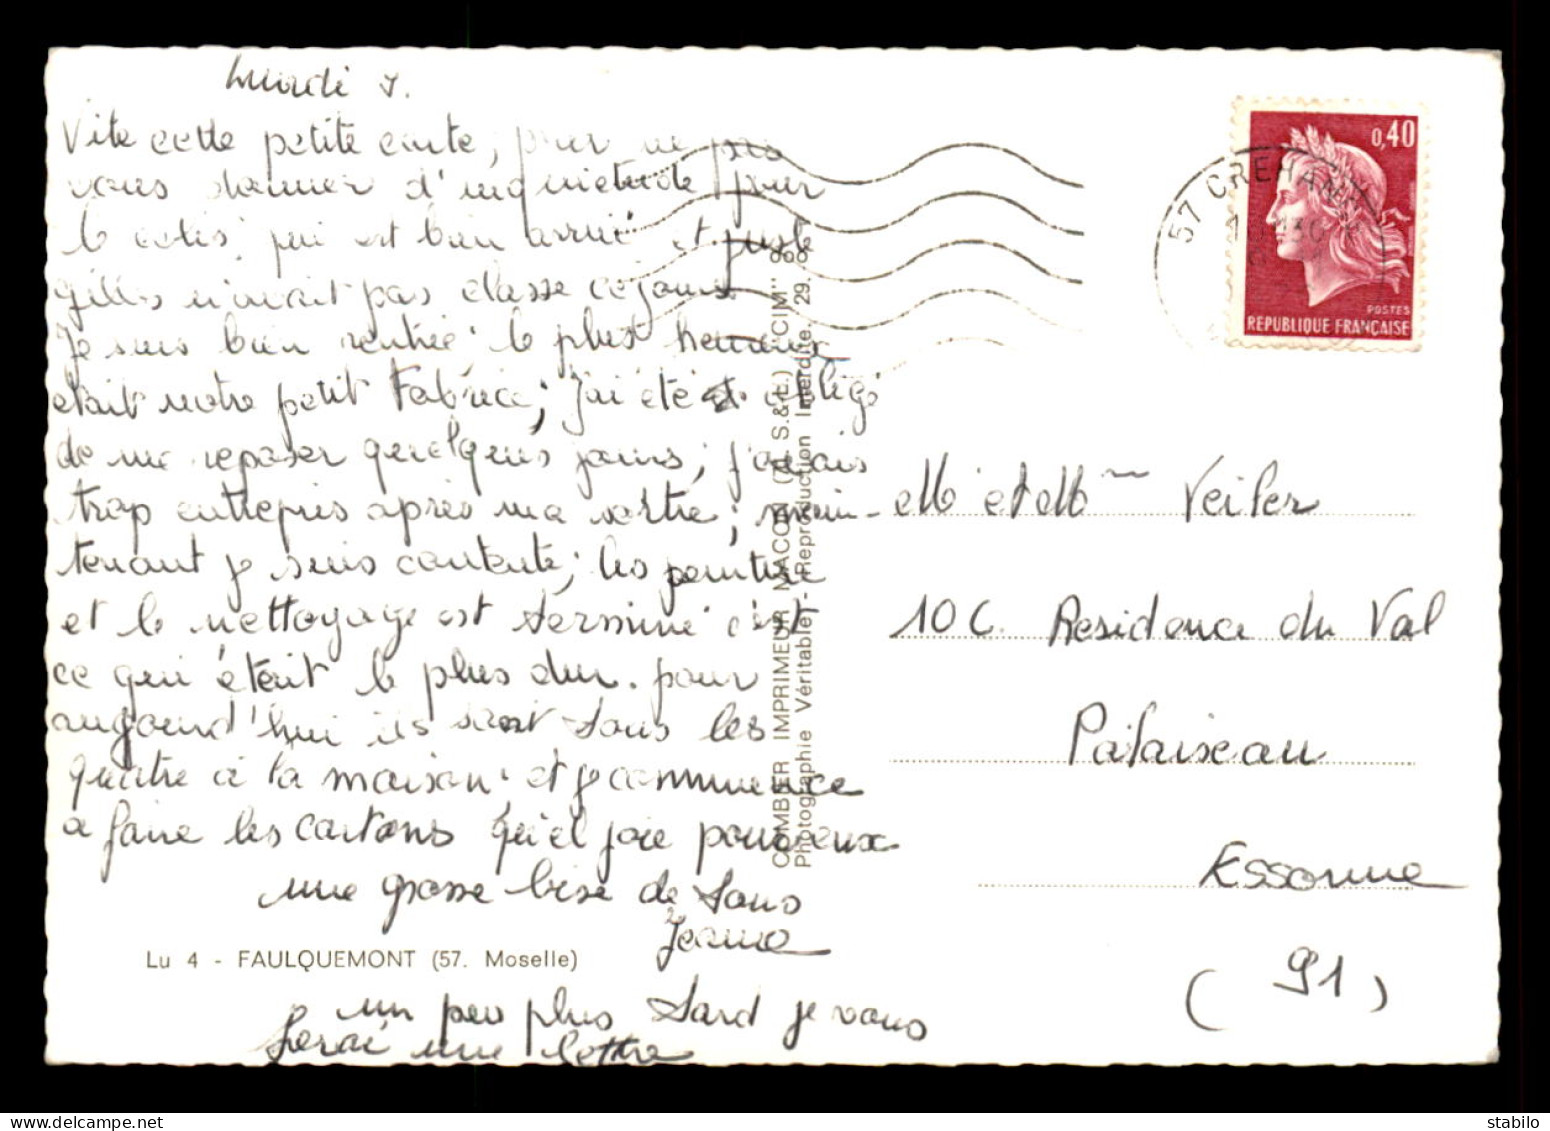 Vite cette petite carte, pour ne pas
vous donner d'inquietude pour
le colis, qui est bien arrivé et juste
gilles n'avait pas classe ce jour
Je suis bien rentrée, le plus heureux
etait notre petit Fabrice, j'ai été obligé
de me reposer quelques jours, j'avais
trop entrepris après ma sortie, main-
tenant je suis contente, les peinture
et le nettoyage est terminé c'est
ce qui était le plus dur. pour
aujourd'hui ils sont tous les
quatre à la maison, et je commence
a faire les cartons quel joie pour eux
une grosse bise de tous
Jeanne
un peu plus tard je vous
ferai une lettre
Lu 4 - FAULQUEMONT (57. Moselle)
COMBIER IMPRIMEUR MACON (71. S.&L.) "CIM"
Photographie Véritable - Reproduction Interdite. 29.
0,40
POSTES
REPUBLIQUE FRANÇAISE
57 CREHANGE
M et Mme
10 C. Residence du Val
Palaiseau
Essonne
(91)
stabilo